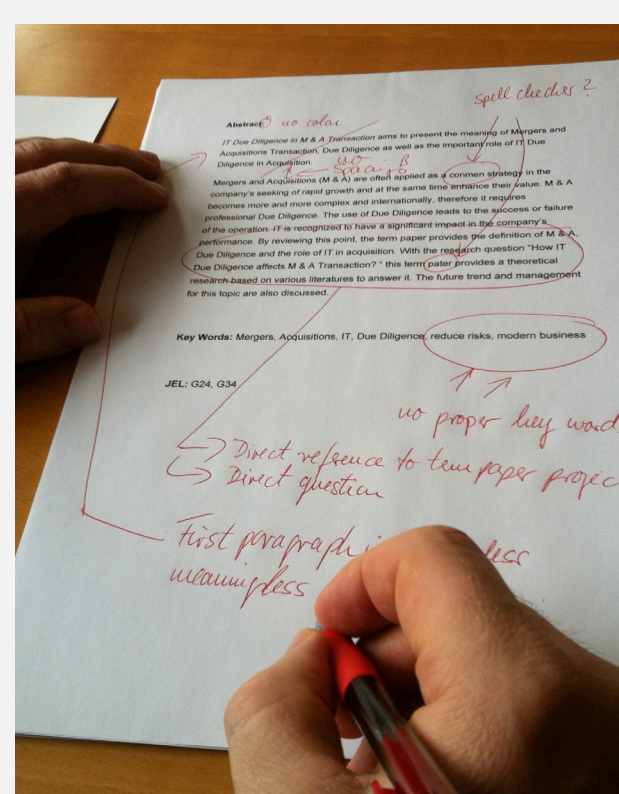 spell checker?
Abstract: no colon
IT Due Diligence in M & A Transaction aims to present the meaning of Mergers and
Acquisitions Transaction, Due Diligence as well as the important role of IT Due
Diligence in Acquisition.
no
spacing
Mergers and Acquisitions (M & A) are often applied as a conmen strategy in the
company's seeking of rapid growth and at the same time enhance their value. M & A
becomes more and more complex and internationally, therefore it requires
professional Due Diligence. The use of Due Diligence leads to the success or failure
of the operation. IT is recognized to have a significant impact in the company's
performance. By reviewing this point, the term paper provides the definition of M & A,
Due Diligence and the role of IT in acquisition. With the research question "How IT
Due Diligence affects M & A Transaction? " this term pater provides a theoretical
research based on various literatures to answer it. The future trend and management
for this topic are also discussed.
Key Words: Mergers, Acquisitions, IT, Due Diligence, reduce risks, modern business
JEL: G24, G34
no proper key word
Direct reference to term paper projec
Direct question
First paragraph less
meaningless